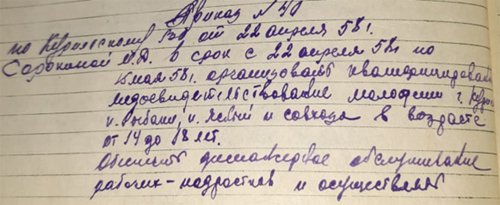 Приказ № 40
по Курильскому от 22 апреля 58 г.
Сорокиной в срок с 22 апреля 58 г. по
мая 58 г. организовать
медосвидетельствование молодежи г.
п. Рыбаки, п. и совхоза в возрасте
от 14 до 18 лет.
диспансерное обслуживание
рабочих-подростков и осуществлять